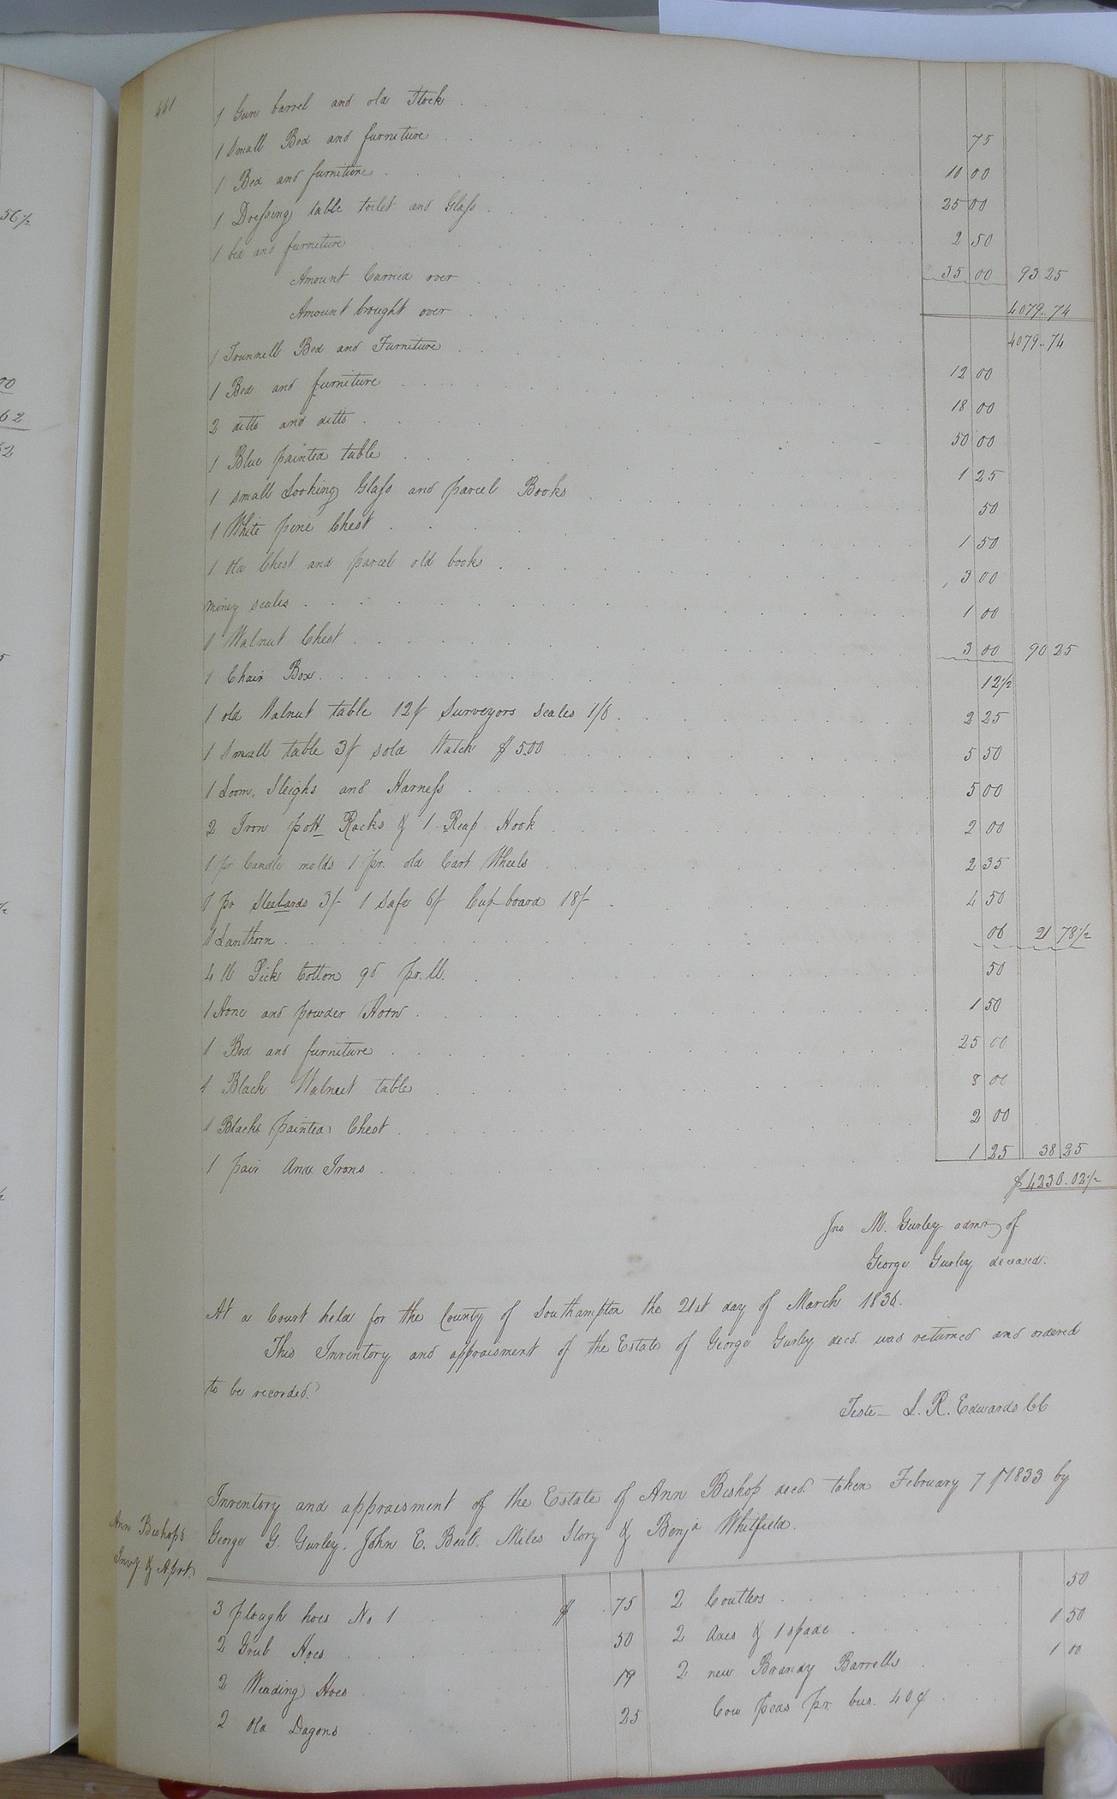 441
1 Gun barrel and old Stock 75
1 Small Bed and furniture 10 00
1 Bed and furniture 25 00
1 Dressing table toilet and Glass 2 50
1 bed and furniture 35 00 93 25
Amount Carried over 4079.74
Amount brought over 4079.74
1 Trunnell Bed and Furniture 12 00
1 Bed and furniture 18 00
2 ditto and ditto 50 00
1 Blue painted table 1 25
1 small Looking Glass and parcel Books 50
1 White pine Chest 1 50
1 old Chest and parcel old books 3 00
money scales 1 00
1 Walnut Chest 3 00 90 25
1 Chair Box 12 1/2
1 old Walnut table 12/ Surveyors Scales 1/6 2 25
1 Small table 3/ gold Watch $ 5.00 5 50
1 Loom, Sleighs and Harness 5 00
2 Iron pott Racks & 1 Reap Hook 2 00
1 pr Candle molds 1 pr. old Cart Wheels 2 35
1 pr Steelards 3/ 1 Safe 6/ Cupboard 18/ 4 50
1 Lanthorn 06 21 78 1/2
4 lb Pick Cotton 9d pr. lb. 50
1 Hone and powder Horn 1 50
1 Bed and furniture 25 00
1 Black Walnut table 8 00
1 Black painted Chest 2 00
1 pair And Irons 1 25 38 25
$ 4230.02 1/2
Jno M. Gurley admr of
George Gurley deceased.
At a Court held for the County of Southampton the 21st day of March 1836.
This Inventory and appraisment of the Estate of George Gurley decd. was returned and ordered
to be recorded.
Teste L. R. Edwards CC
Ann Bishop's
Invy & Aprt.
Inventory and appraisment of the Estate of Ann Bishop decd. taken February 7th 1833 by
George G. Gurley. John E. Beal. Miles Story & Benja Whitfield.
3 plough hoes No 1 $ 75 2 Coulters 50
2 Grub Hoes 50 2 axes & 1 spade 1 50
2 Weading Hoes 19 2 new Brandy Barrells 1 00
2 old Dagons 25 Cow peas pr. bus. 40¢
56 1/2
62